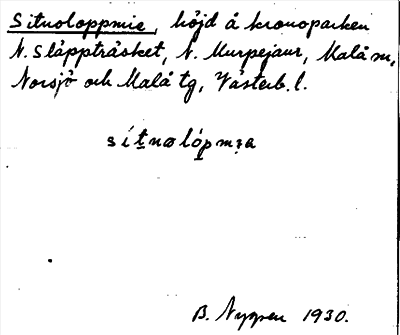 Situoloppmie, höjd å kronoparken
N. Släppträsket, N. Murpejaur, Malå sn,
Norsjö och Malå tg, Västerb. l.
B. Nygren 1930.